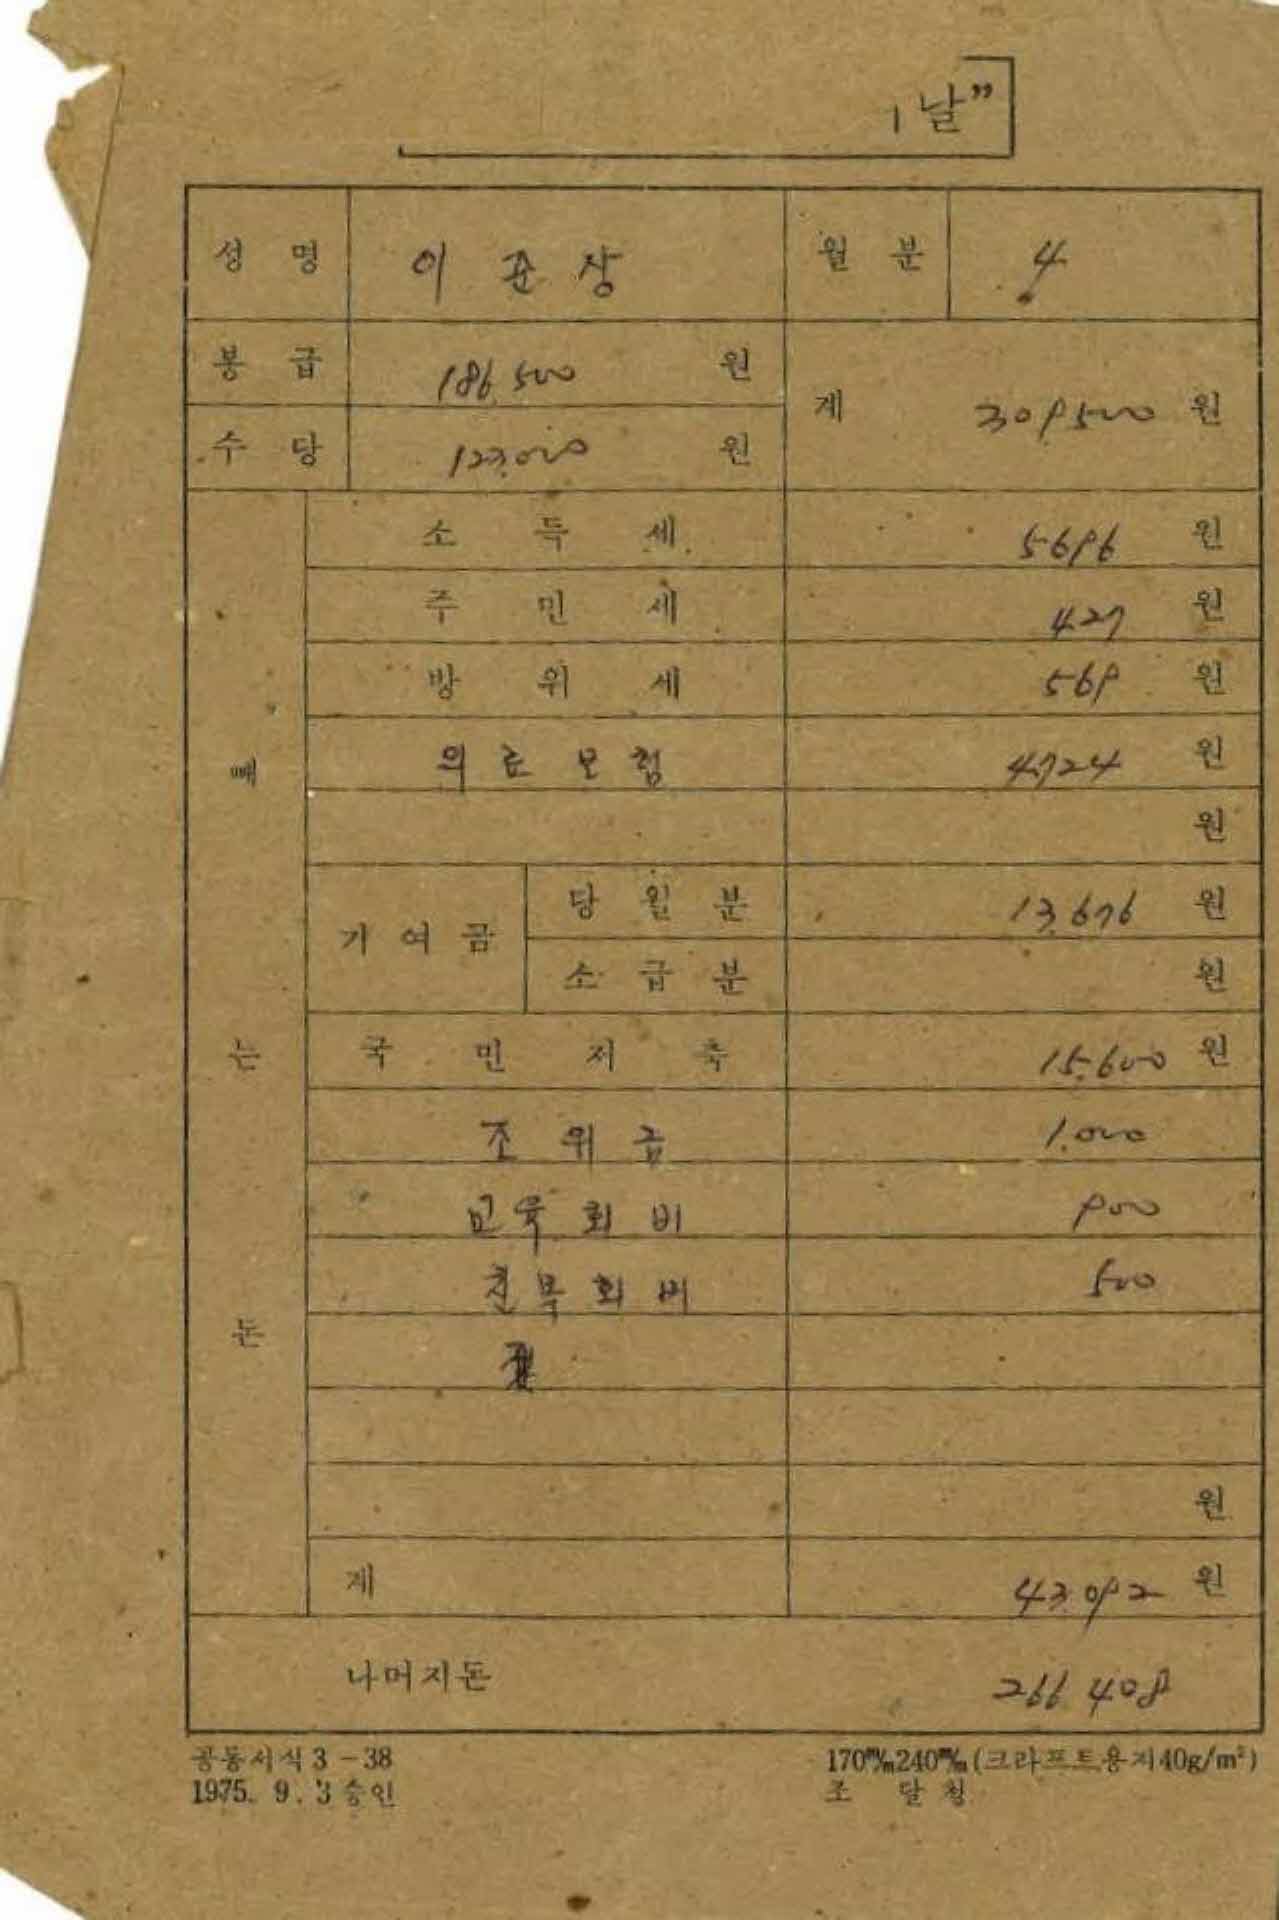 날”
성 명 이 준 상 월 분 4
봉 급 186,500 원
계 309500 원
수 당 123,000 원
빼 는 돈
소 득 세 5696 원
주 민 세 427 원
방 위 세 569 원
의 료 보 험 4,724 원
원
기 여 금 당 월 분 13,676 원
소 급 분 원
국 민 저 축 15,600 원
조 위 금 1,000
교 육 회 비 900
친 목 회 비 500
원
계 43,092 원
나머지돈 266,408
공동서식 3-38
1975. 9. 3 승인
170㎜240㎜(크라프트용지40g/m²)
조 달 청